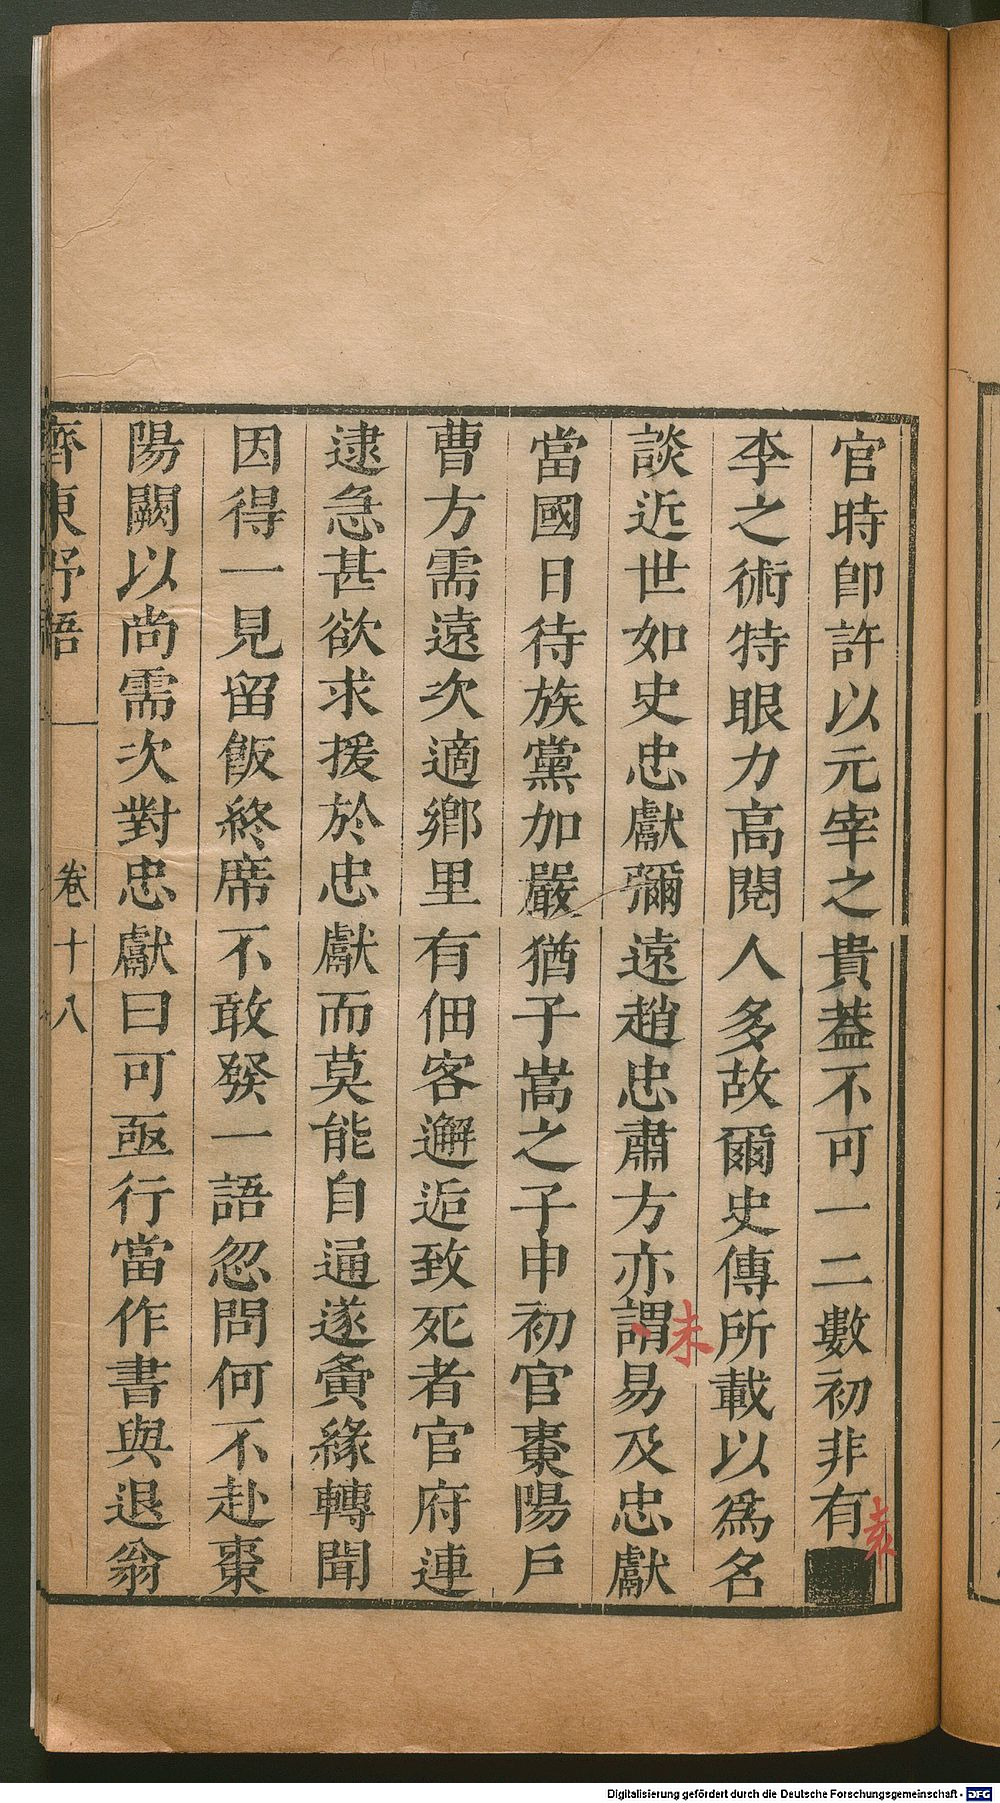 官時卽許以元宰之貴葢不可一二數初非有
袁
李之術特眼力高閱人多故爾史傳所載以爲名
談近世如史忠獻彌遠趙忠肅方亦謂易及忠獻
未
當國日待族黨加嚴猶子嵩之子申初官棗陽戶
曹方需遠次適鄉里有佃客邂逅致死者官府連
逮急甚欲求援於忠獻而莫能自通遂夤緣轉聞
因得一見留飯終席不敢發一語忽問何不赴棗
陽闕以尚需次對忠獻曰可亟行當作書與退翁
齊東野語
卷十八
Digitalisierung gefördert durch die Deutsche Forschungsgemeinschaft - DFG